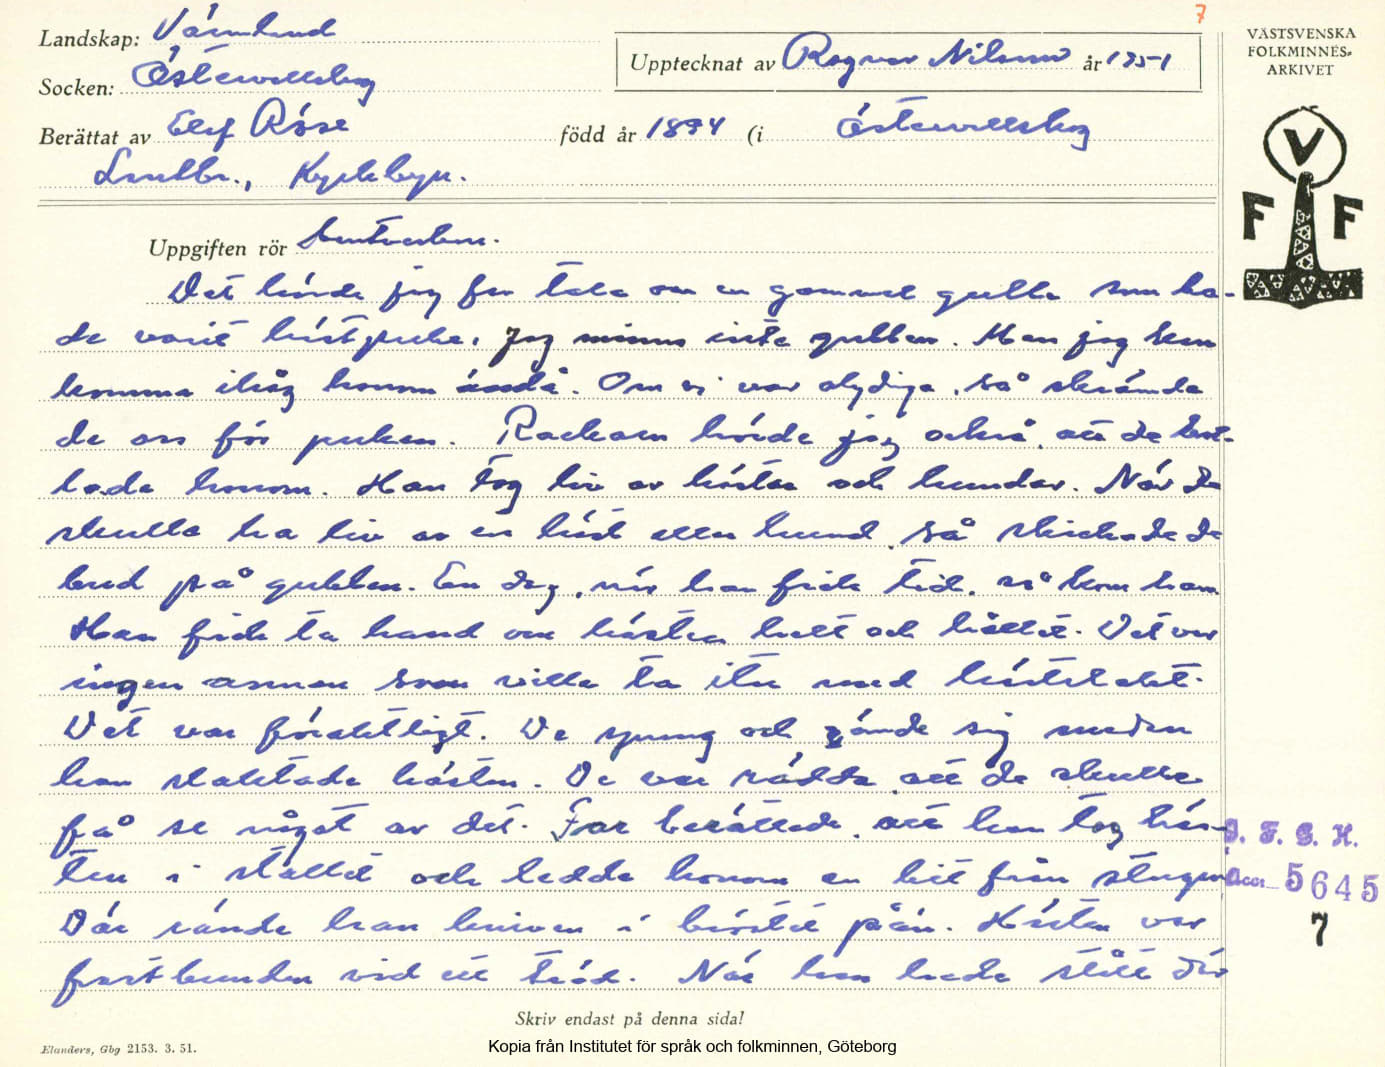 7
Landskap: Värmland
Socken: Östervallskog
Berättat av Elof Röse
Upptecknat av Ragnar Nilsson år 1951
född år 1894 (i Östervallskog
Lantbr.,
Uppgiften rör
Det hörde jag far tala om en gammel gubbe som ha-
de varit hästpuke. Jag minns inte gubben. Men jag kan
komma ihåg honom ändå. Om vi var olydiga, så skrämde
de oss för puken. Rackarn hörde jag också, att de kal-
lade honom. Han tog liv av hästar och hundar. När de
skulle ha liv av en häst eller hund, så skickade de
bud på gubben. En dag, när han fick tid, så kom han.
Han fick ta hand om hästen helt och hållet. Det var
ingen annan som ville ta itu med hästslakt.
Det var förskräckligt. De sprang och gömde sig medan
han slaktade hästen. De var rädda, att de skulle
få se något av det. Far berättade, att han tog häs-
ten i stallet och ledde honom en bit från stugan.
Där rände han kniven i bröstet på'n. Hästen var
fastbunden vid ett träd. När han hade stått där
Skriv endast på denna sida!
Elanders, Gbg 2153. 3. 51.
Kopia från Institutet för språk och folkminnen, Göteborg
VÄSTSVENSKA
FOLKMINNES-
ARKIVET
V
F F
I. F. G. H.
Acc. 5645
7